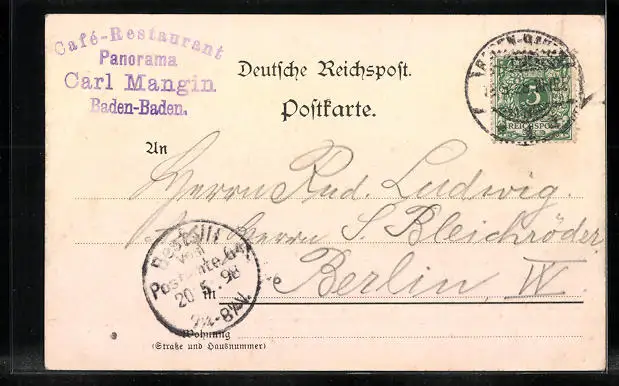 Café-Restaurant
Panorama
Carl Mangin
Baden-Baden.
Deutsche Reichspost.
Postkarte.
5
REICHSPOST
An
Herrn Rud. Ludwig.
Herrn S. Bleichröder
in Berlin, W.
Bestellt
vom
Postamte
20.5.98
Wohnung
(Straße und Hausnummer)